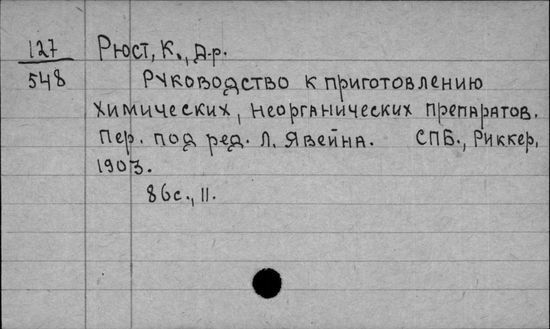 127
548
Рюст, К., д-р.
Руководство к приготовлению
химических, неорганических препаратов.
Пер. под ред. Л. Явейна. СПБ., Риккер,
1903.
86с., II.